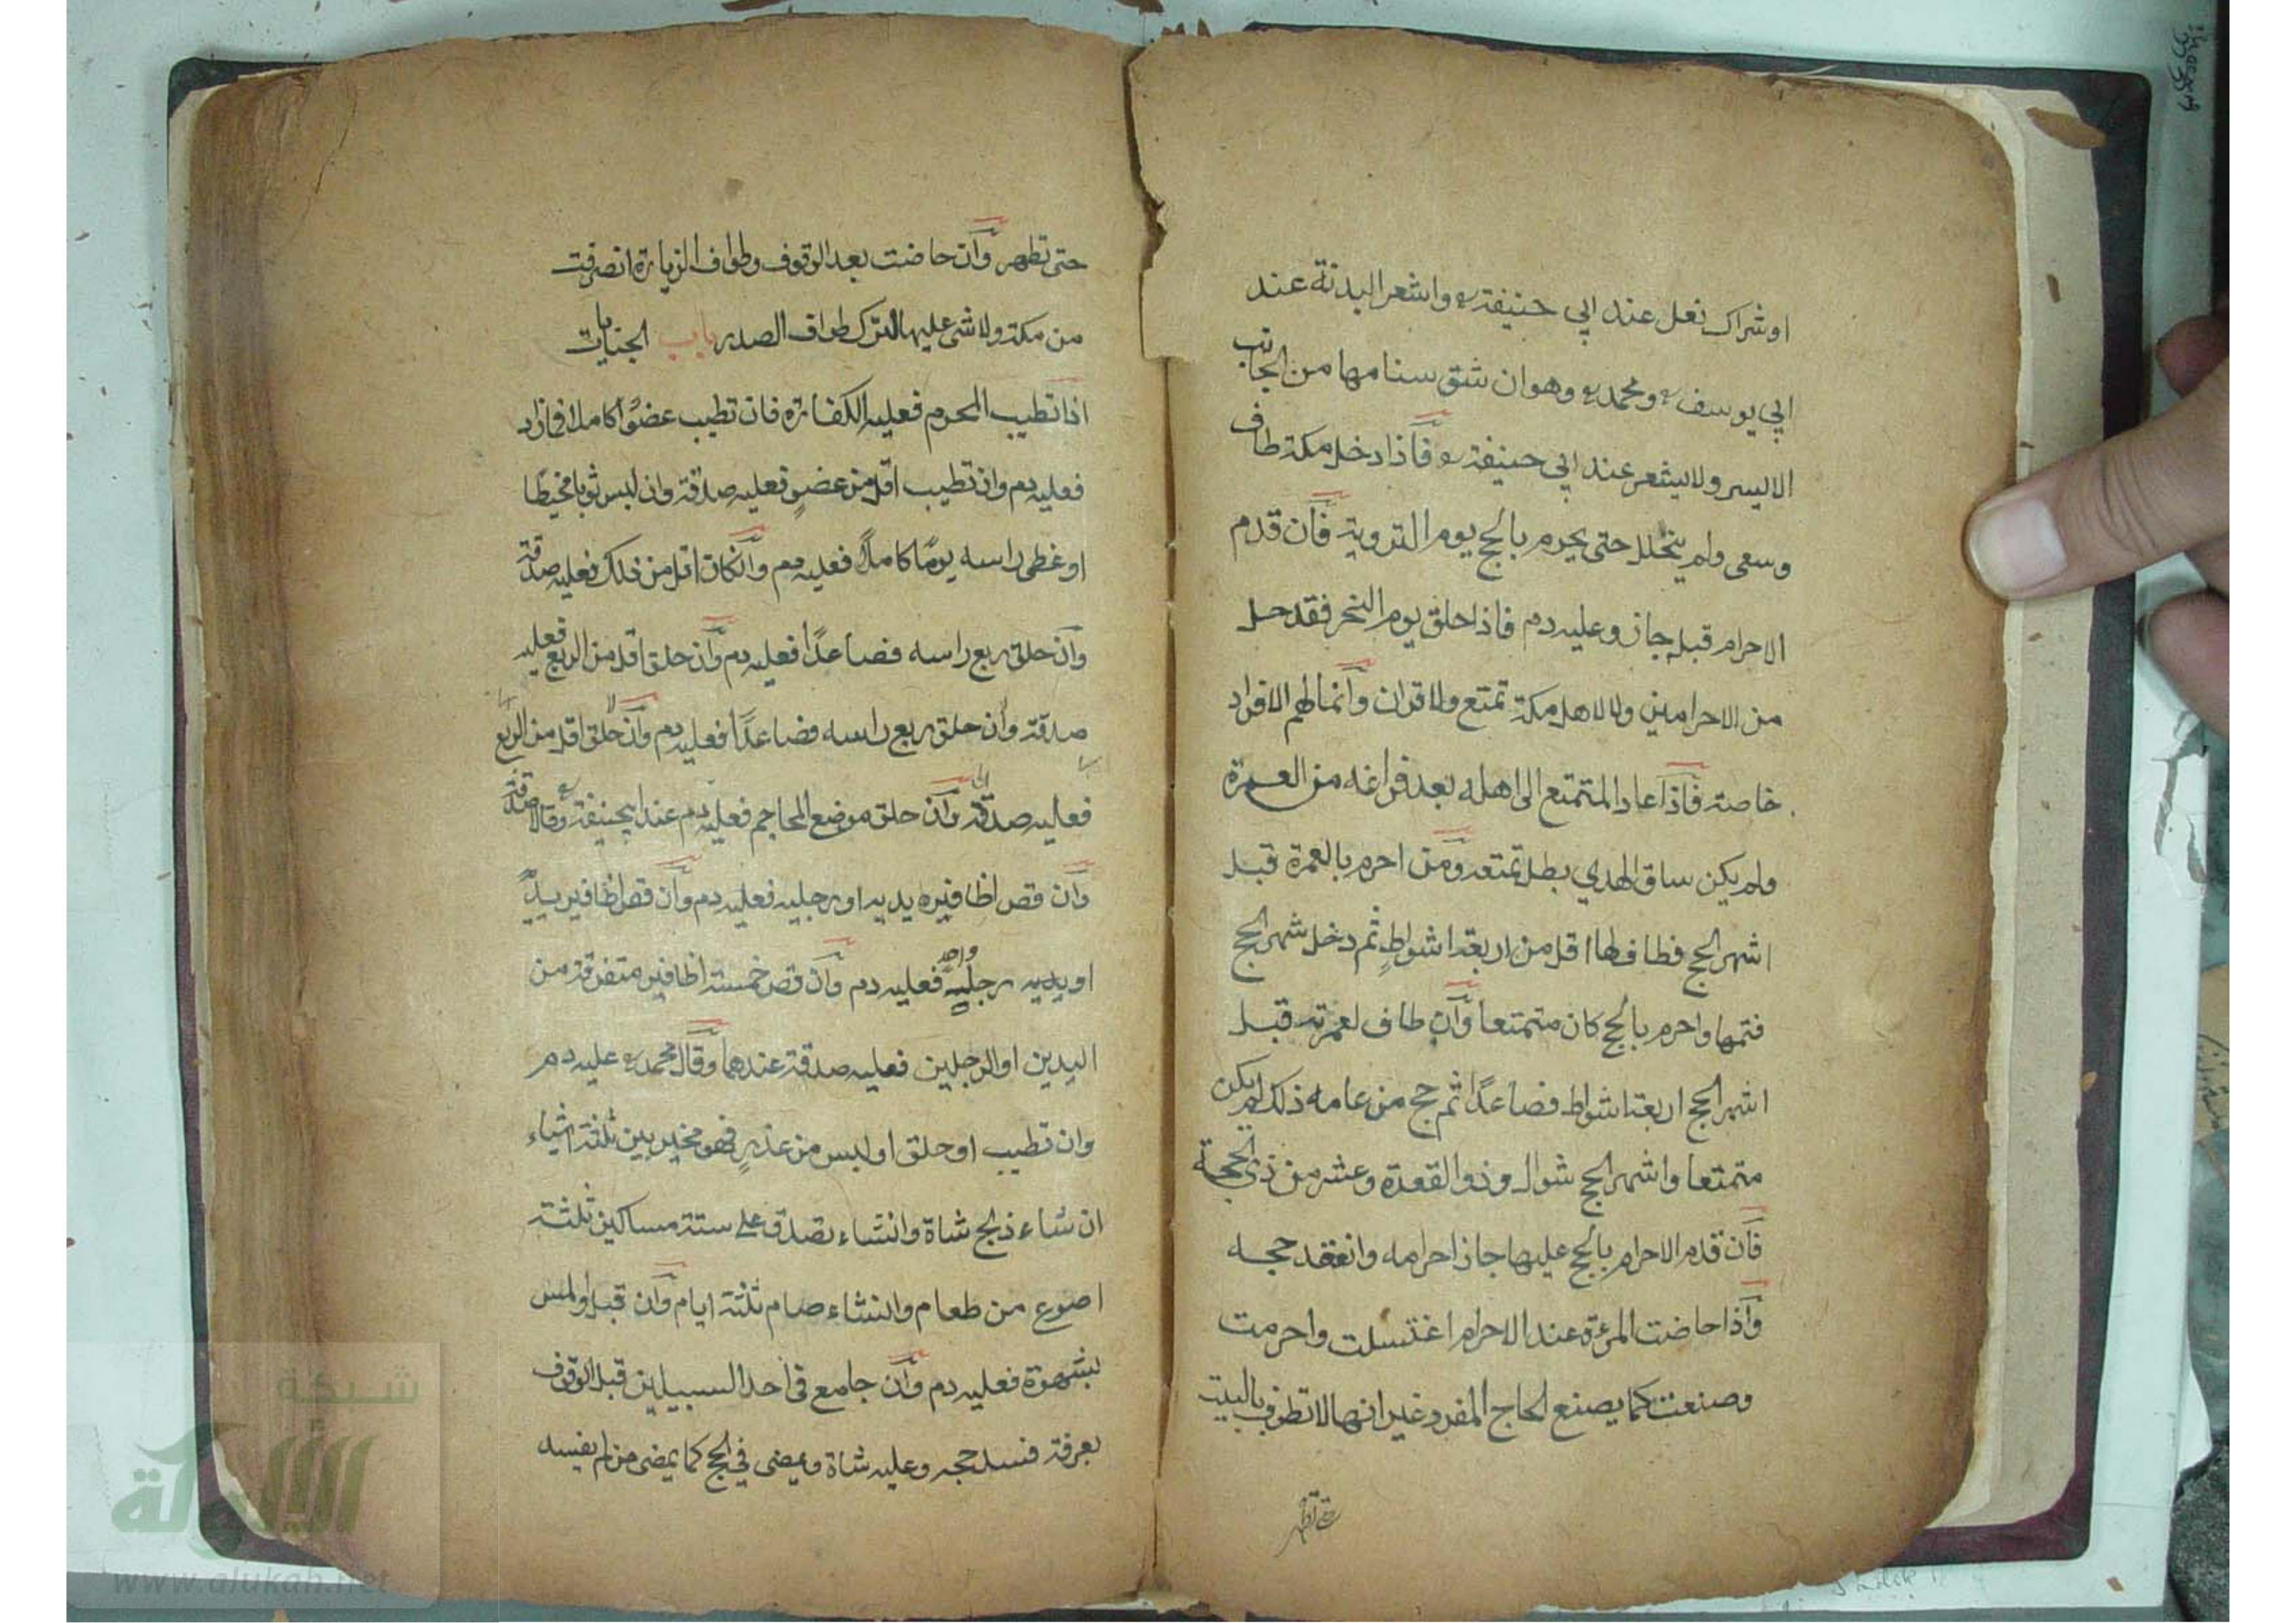 اوشراك نعل عند ابي حنيفة واشعر البدنة عند
ابي يوسف ومحمد وهو ان شق سنامها من الجانب
الايسر ولا يشعر عند ابي حنيفة فاذا دخل مكة طاف
وسعى ولم يتحلل حتى يحرم بالحج يوم التروية فان قدم
الاحرام قبله جاز وعليه دم فاذا حلق يوم النحر فقد حل
من الاحرامين ولا لاهل مكة تمتع ولا قران وانما لهم الافراد
خاصة فاذا عاد المتمتع الى اهله بعد فراغه من العمرة
ولم يكن ساق الهدي بطل تمتعه ومن احرم بالعمرة قبل
اشهر الحج فطاف لها اقل من اربعة اشواط ثم دخل شهر الحج
فتمها واحرم بالحج كان متمتعا وان طاف لعمرته قبل
اشهر الحج اربعة اشواط فصاعدًا ثم حج من عامه ذلك لم يكن
متمتعا واشهر الحج شوال وذوالقعدة وعشر من ذي الحجة
فان قدم الاحرام بالحج عليها جاز احرامه وانعقد حجه
واذا حاضت المرءة عند الاحرام اغتسلت واحرمت
وصنعت كما يصنع الحاج المفرد غير انها لا تطوف بالبيت
حتى تطهر
حتى تطهر وان حاضت بعد الوقوف وطواف الزيارة انصرفت
من مكة ولا شى عليها لترك طواف الصدر باب الجنايات
اذا تطيب المحرم فعليه الكفارة فان تطيب عضوًا كاملا فمازاد
فعليه دم وان تطيب اقل من عضو فعليه صدقة وان لبس ثوبا مخيطا
او غطى راسه يومًا كاملًا فعليه دم وانكان اقل من ذلك فعليه صدقة
وان حلق ربع راسه فصاعدًا فعليه دم وان حلق اقل من الربع فعليه
صدقة وان حلق ربع راسه فصاعدًا فعليه دم وان حلق اقل من الربع
فعليه صدقة وان حلق موضع المحاجم فعليه دم عند ابيحنيفة وقالا صدقة
وان قص اظافيره يديه او رجليه فعليه دم وان قص اظافير يد
او يديه رجليه واحد فعليه دم وان قص خمسة اظافير متفرقة من
اليدين او الرجلين فعليه صدقة عندهما وقال محمد عليه دم
وان تطيب او حلق او لبس من عذرٍ فهو مخير بين ثلثة اشياء
ان شاء ذبح شاة وانشاء تصدق على ستة مساكين ثلثة
اصوع من طعام وانشاء صام ثلثة ايام وان قبل اولمس
بشهوة فعليه دم وان جامع في احد السبيلين قبل الوقوف
بعرفة فسد حجه وعليه شاة ويمضى في الحج كما يمضى من لم يفسد
شبكة
الألوكة
www.alukah.net